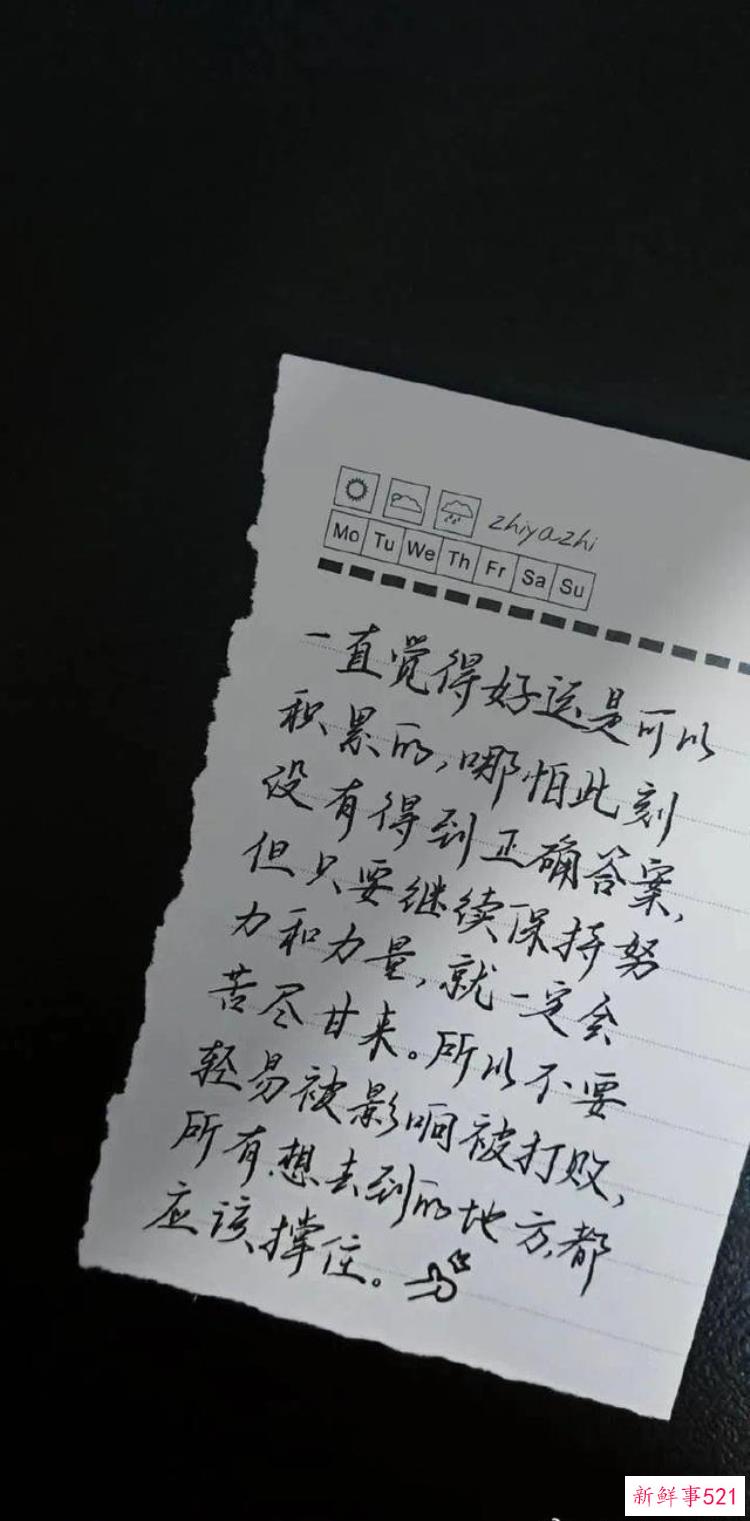 zhiyazhi
Mo Tu We Th Fr Sa Su
一直觉得好运是可以
积累的,哪怕此刻
没有得到正确答案,
但只要继续保持努
力和力量,就一定会
苦尽甘来。所以不要
轻易被影响被打败,
所有想去到的地方,都
应该撑住。
新鲜事521